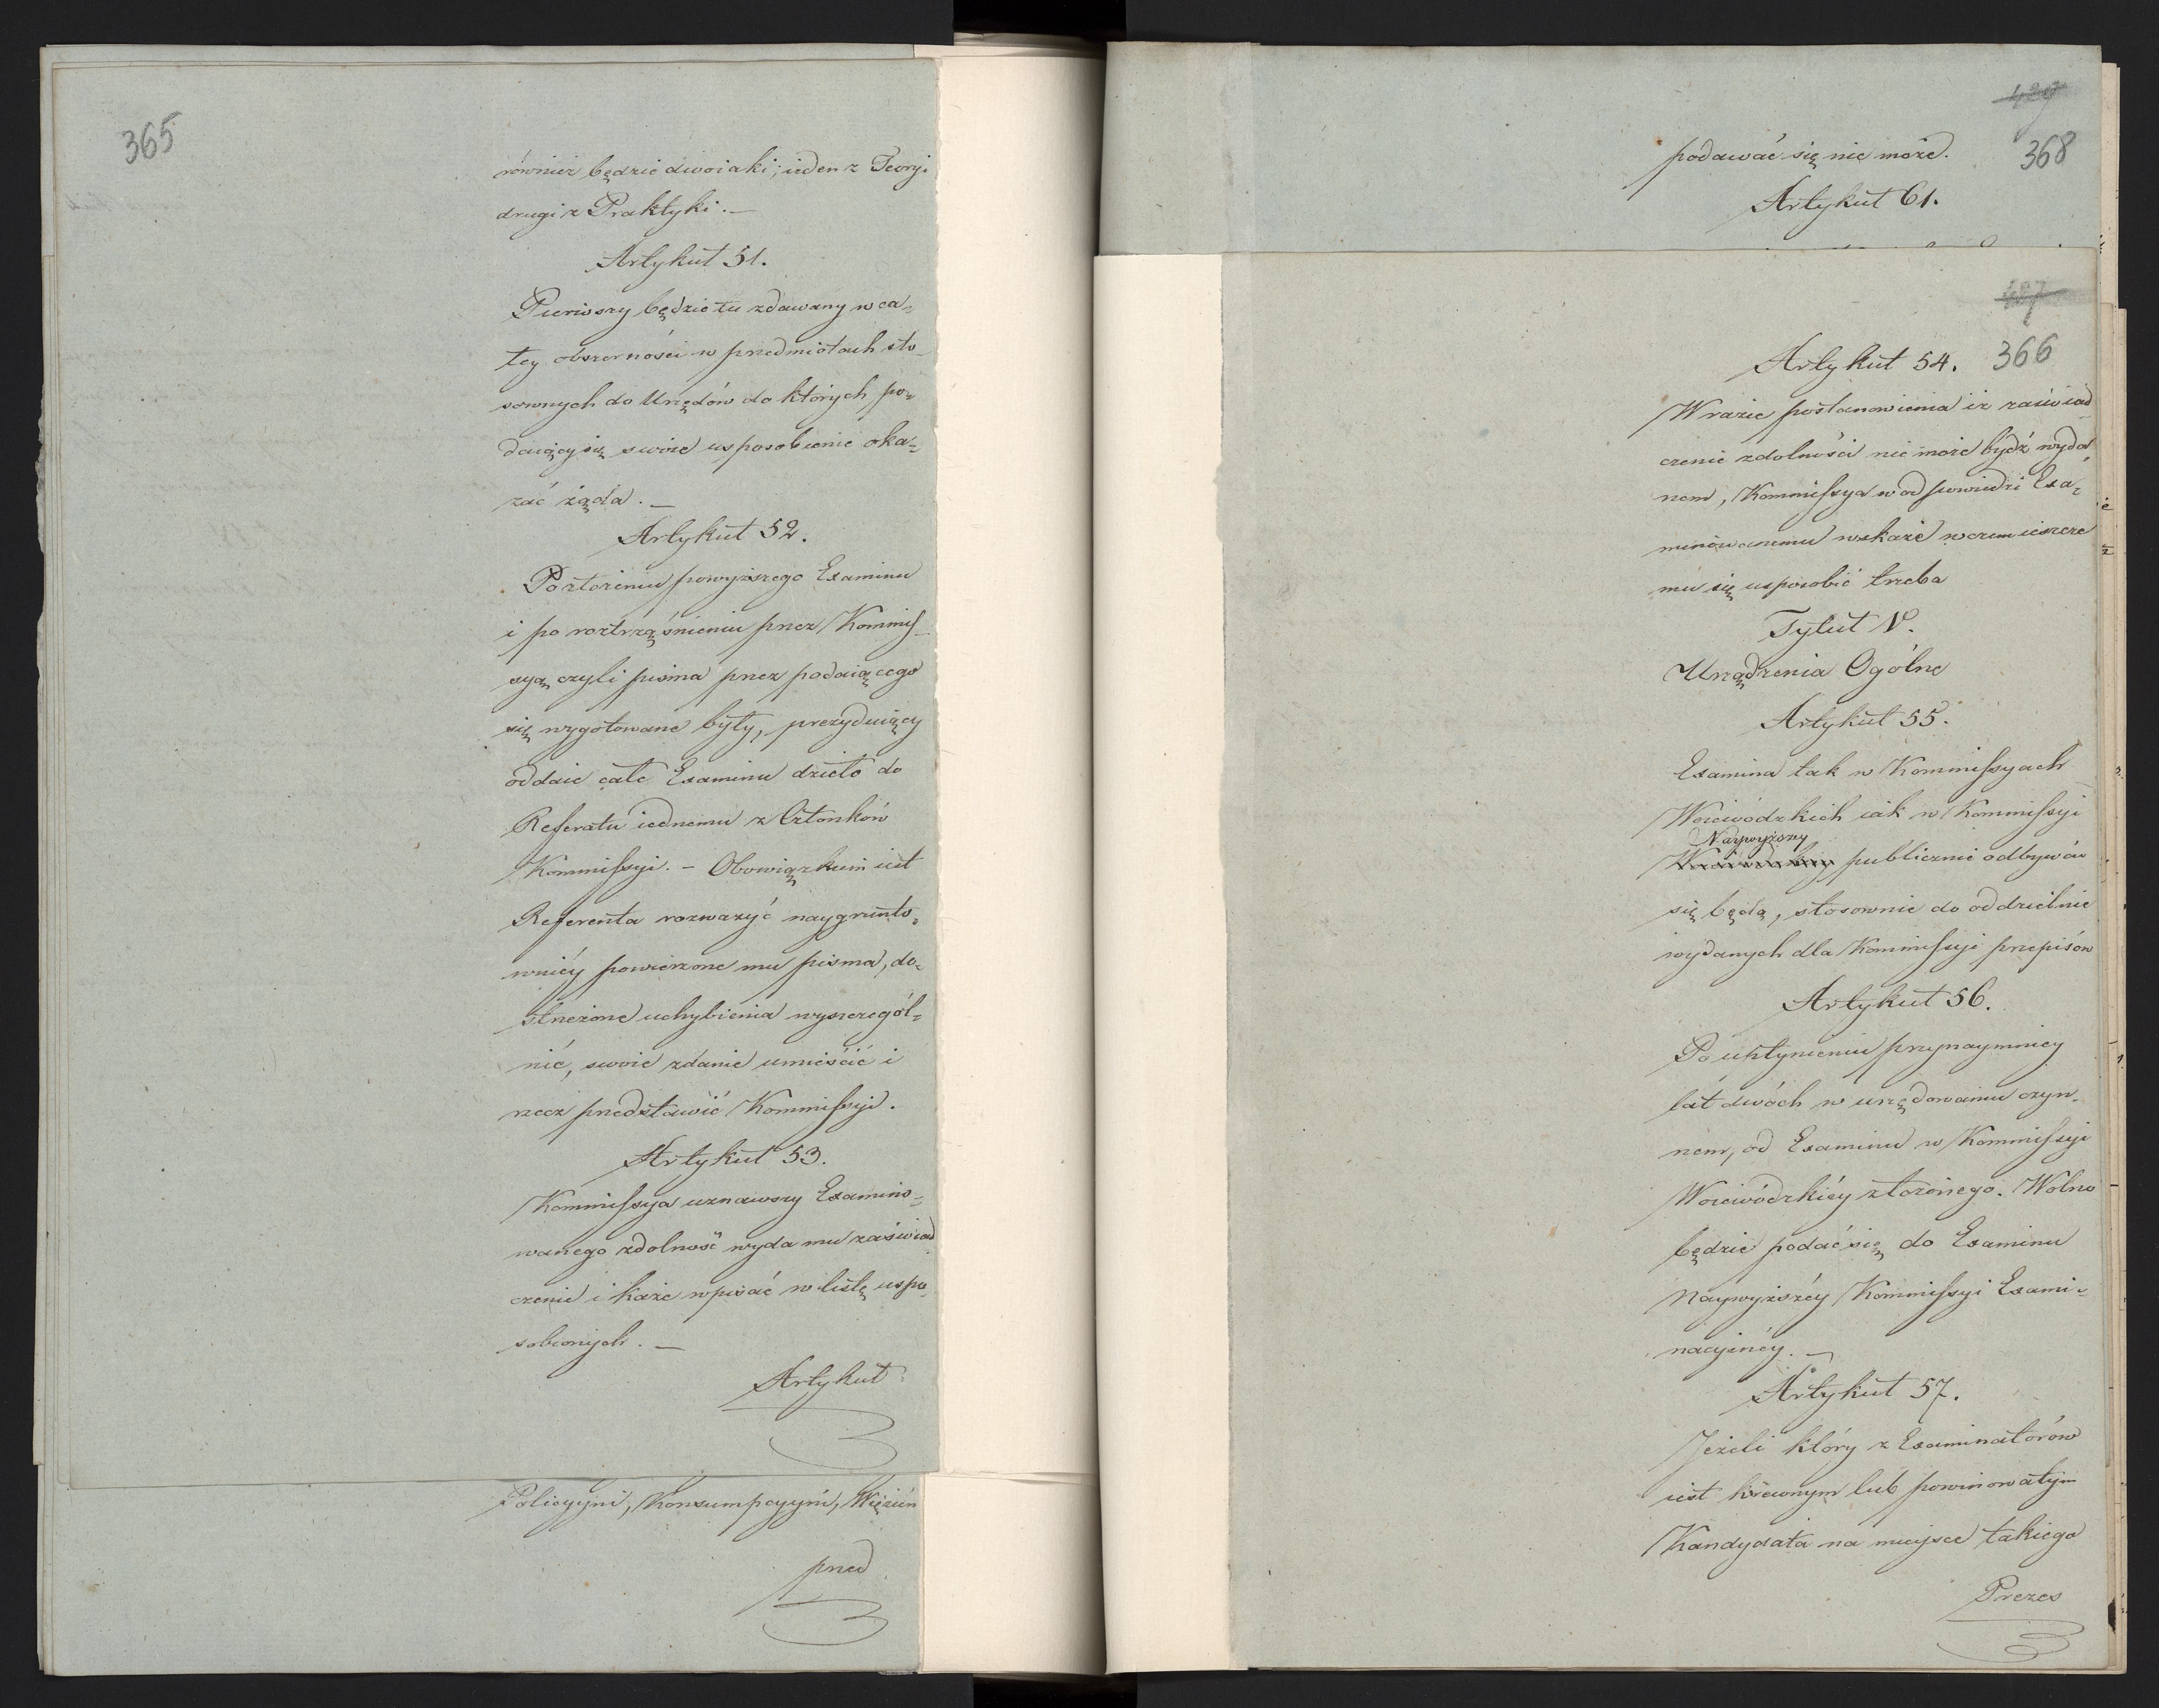 365
również będzie dwoiaki; ieden z Teoryi
drugi z Praktyki. —
Artykuł 51.
Pierwszy będzie tu zdawany w ca-
łey obszerności w przedmiotach sto-
sownych do Urzędów do których po-
daiący się swoie usposobienie oka-
zać żąda. —
Artykuł 52.
Po złożeniu powyższego Examinu
i po roztrząśnieniu przez Kommis-
syą czyli pisma przez podaiącego
się wygotowane były, prezyduiący
oddaie całe Examinu dzieło do
Referatu iednemu z Członków
Kommissyi. — Obowiązkiem iest
Referenta rozważyć naygrunto-
wniéy powierzone mu pisma, do-
strzeżone uchybienia wyszczegól-
nić, swoie zdanie umieścić i
rzecz przedstawić Kommissyi.
Artykuł 53.
Kommissya uznawszy Examino-
wanego zdolność wyda mu zaświad-
czenie i każe wpisać w listę uspo-
sobionych. —
Artykuł
Policyyni, Konsumpcyyni, Więzień
przed
429
podawać się nie może.
368
Artykuł 61.
427
Artykuł 54.
366
W razie postanowienia iż zaświad-
czenie zdolności nie może bydź wyda-
nem, Kommissya w odpowiedzi Exa-
minowanemu wskaże w czem ieszcze
mu się usposobić trzeba
Tytuł V.
Urządzenia Ogólne
Artykuł 55.
Examina tak w Kommissyach
Woiewódzkich iak w Kommissyi
Naywyższey
publicznie odbywać
się będą, stosownie do oddzielnie
wydanych dla Kommissyi przepisów
Artykuł 56.
Po upłynieniu przynaymniey
lat dwóch w urzędowaniu czyn-
nem, od Examinu w Kommissyi
Woiewódzkiéy złożonego. Wolno
będzie podać się do Examinu
Naywyższéy Kommissyi Exami-
nacyinéy. —
Artykuł 57.
Jeżeli który z Examinatorów
iest krewnym lub powinowatym
Kandydata na miejsce takiego
Prezes